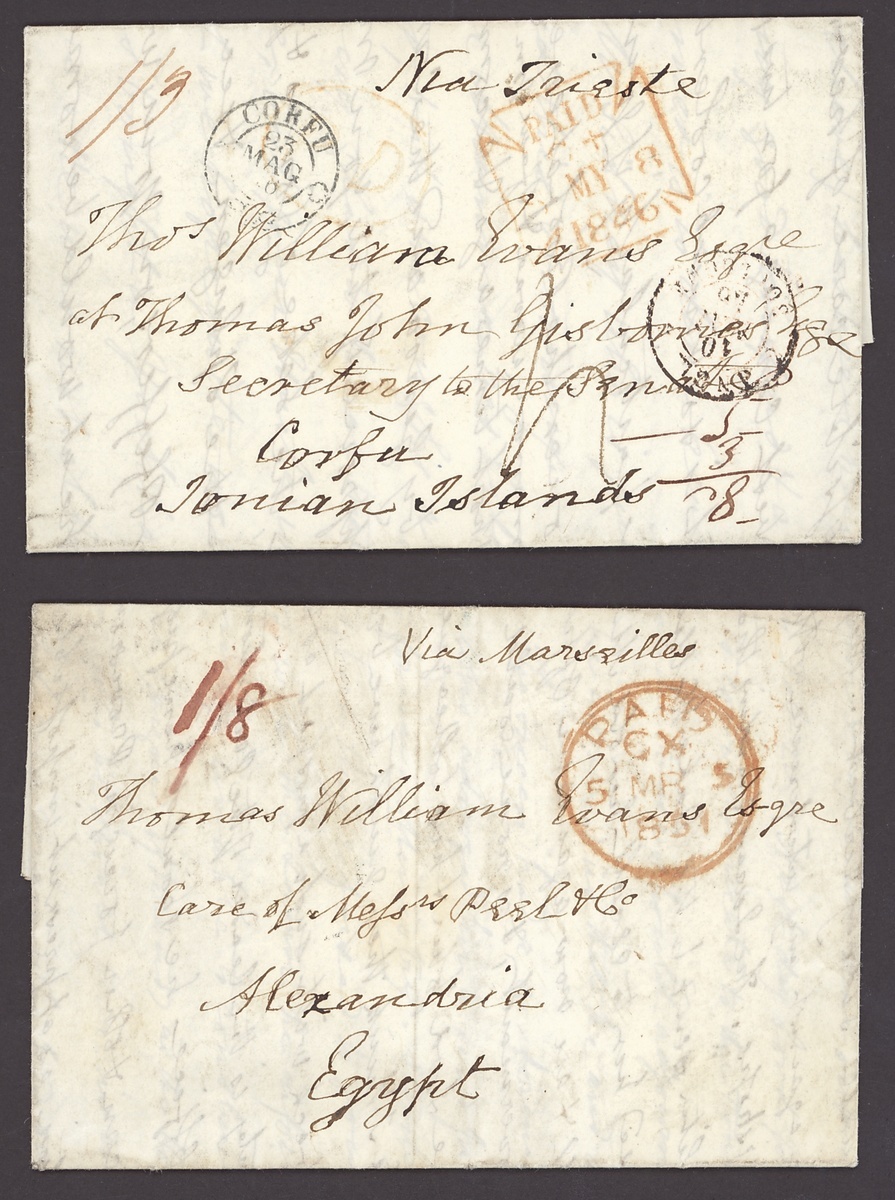 1/3
Via Trieste
CORFU
23
MAG
PAID
MY 8
1846
Thos William Evans Esqre
at Thomas John Gisbornes Esqe
Secretary to the Senate
5
Corfu
3
Ionian Islands
8
10
1/8
Via Marseilles
PAID
CX
5 MR 5
1851
Thomas William Evans Esqre
Care of Messrs Peel & Co
Alexandria
Egypt